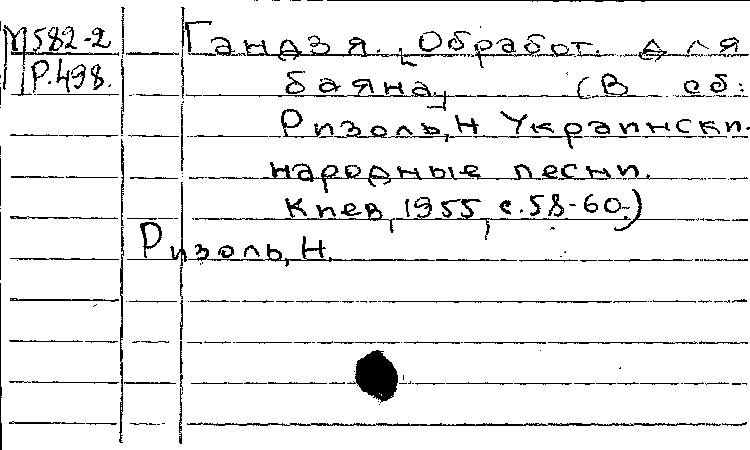 М582-2
Р.498.
Гандзя. [Обработ. для
баяна] (В сб:
Ризоль, Н Украински.
народные песни.
Киев, 1955, с.58-60.)
Ризоль, Н.